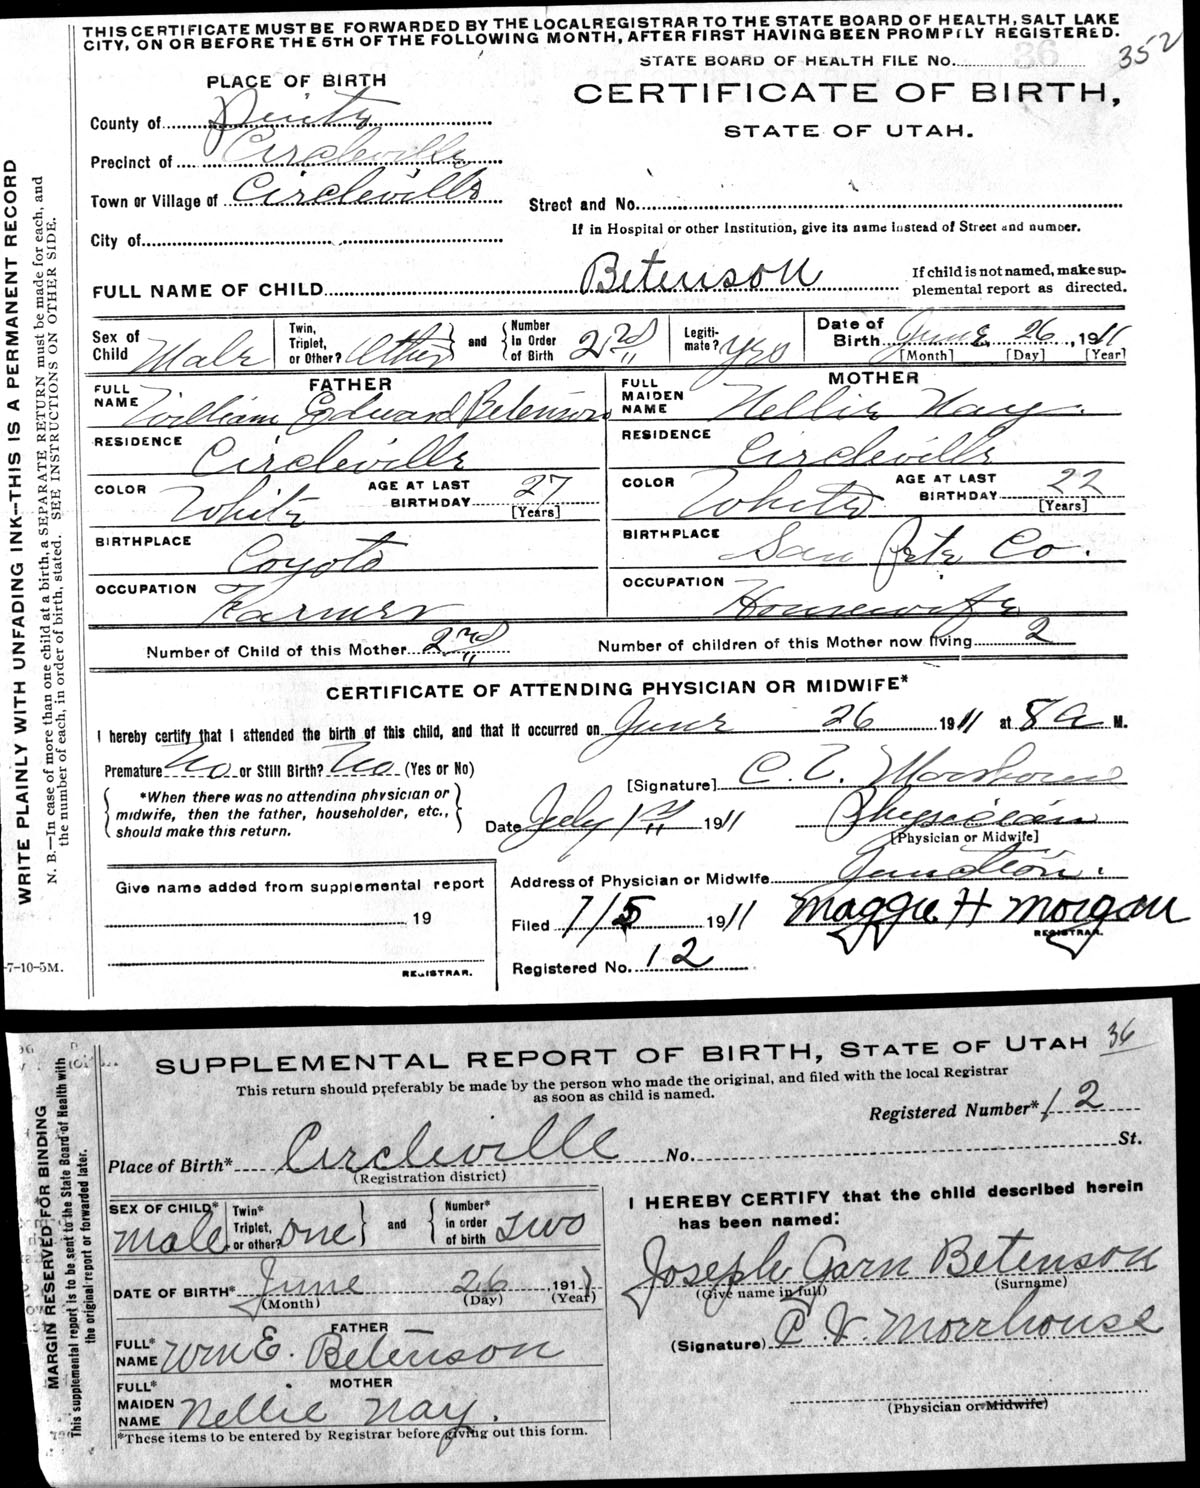 THIS CERTIFICATE MUST BE FORWARDED BY THE LOCAL REGISTRAR TO THE STATE BOARD OF HEALTH, SALT LAKE
CITY, ON OR BEFORE THE 5TH OF THE FOLLOWING MONTH, AFTER FIRST HAVING BEEN PROMPTLY REGISTERED.
STATE BOARD OF HEALTH FILE No. 36 352
PLACE OF BIRTH
CERTIFICATE OF BIRTH,
STATE OF UTAH.
County of
Precinct of Circleville
Town or Village of Circleville
Street and No.
City of
If in Hospital or other Institution, give its name instead of Street and number.
FULL NAME OF CHILD Betenson
If child is not named, make sup-
plemental report as directed.
Sex of Child Male
Twin, Triplet, or Other? Other and Number in Order of Birth 2nd
Legiti-mate? Yes
Date of Birth June 26, 1911
[Month] [Day] [Year]
FATHER
FULL NAME William Edward Betenson
RESIDENCE Circleville
COLOR White AGE AT LAST BIRTHDAY 27 [Years]
BIRTHPLACE Coyoto
OCCUPATION Farmer
MOTHER
FULL MAIDEN NAME Nellie Nay.
RESIDENCE Circleville
COLOR White AGE AT LAST BIRTHDAY 22 [Years]
BIRTHPLACE San Pete Co.
OCCUPATION Housewife
Number of Child of this Mother 2nd Number of children of this Mother now living 2
CERTIFICATE OF ATTENDING PHYSICIAN OR MIDWIFE*
I hereby certify that I attended the birth of this child, and that it occurred on June 26 1911 at 8 a M.
Premature No or Still Birth? No (Yes or No)
*When there was no attending physician or
midwife, then the father, householder, etc.,
should make this return.
[Signature] C. E. Morrhouse
Date July 1st 1911 Physician
[Physician or Midwife]
Give name added from supplemental report
19
REGISTRAR.
Address of Physician or Midwife Junction.
Filed 7/5 1911 Maggie H Morgan
REGISTRAR.
Registered No. 12
-7-10-5M.
WRITE PLAINLY WITH UNFADING INK—THIS IS A PERMANENT RECORD
N. B.—In case of more than one child at a birth, a SEPARATE RETURN must be made for each, and
the number of each, in order of birth, stated. SEE INSTRUCTIONS ON OTHER SIDE.
SUPPLEMENTAL REPORT OF BIRTH, STATE OF UTAH 36
This return should preferably be made by the person who made the original, and filed with the local Registrar
as soon as child is named.
Registered Number* 12
Place of Birth* Circleville No. St.
(Registration district)
SEX OF CHILD* male
Twin* Triplet, or other? one and Number* in order of birth two
DATE OF BIRTH* June 26, 1911
(Month) (Day) (Year)
FATHER
FULL* NAME Wm E. Betenson
MOTHER
FULL* MAIDEN NAME Nellie Nay.
*These items to be entered by Registrar before giving out this form.
I HEREBY CERTIFY that the child described herein
has been named:
Joseph Garn Betenson
(Give name in full) (Surname)
(Signature) C. V. Morrhouse
(Physician or Midwife)
MARGIN RESERVED FOR BINDING
This supplemental report is to be sent to the State Board of Health with
the original report or forwarded later.